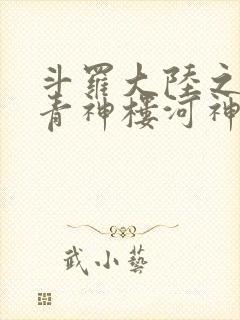 斗羅大陸之
青神樓河神
武小藝